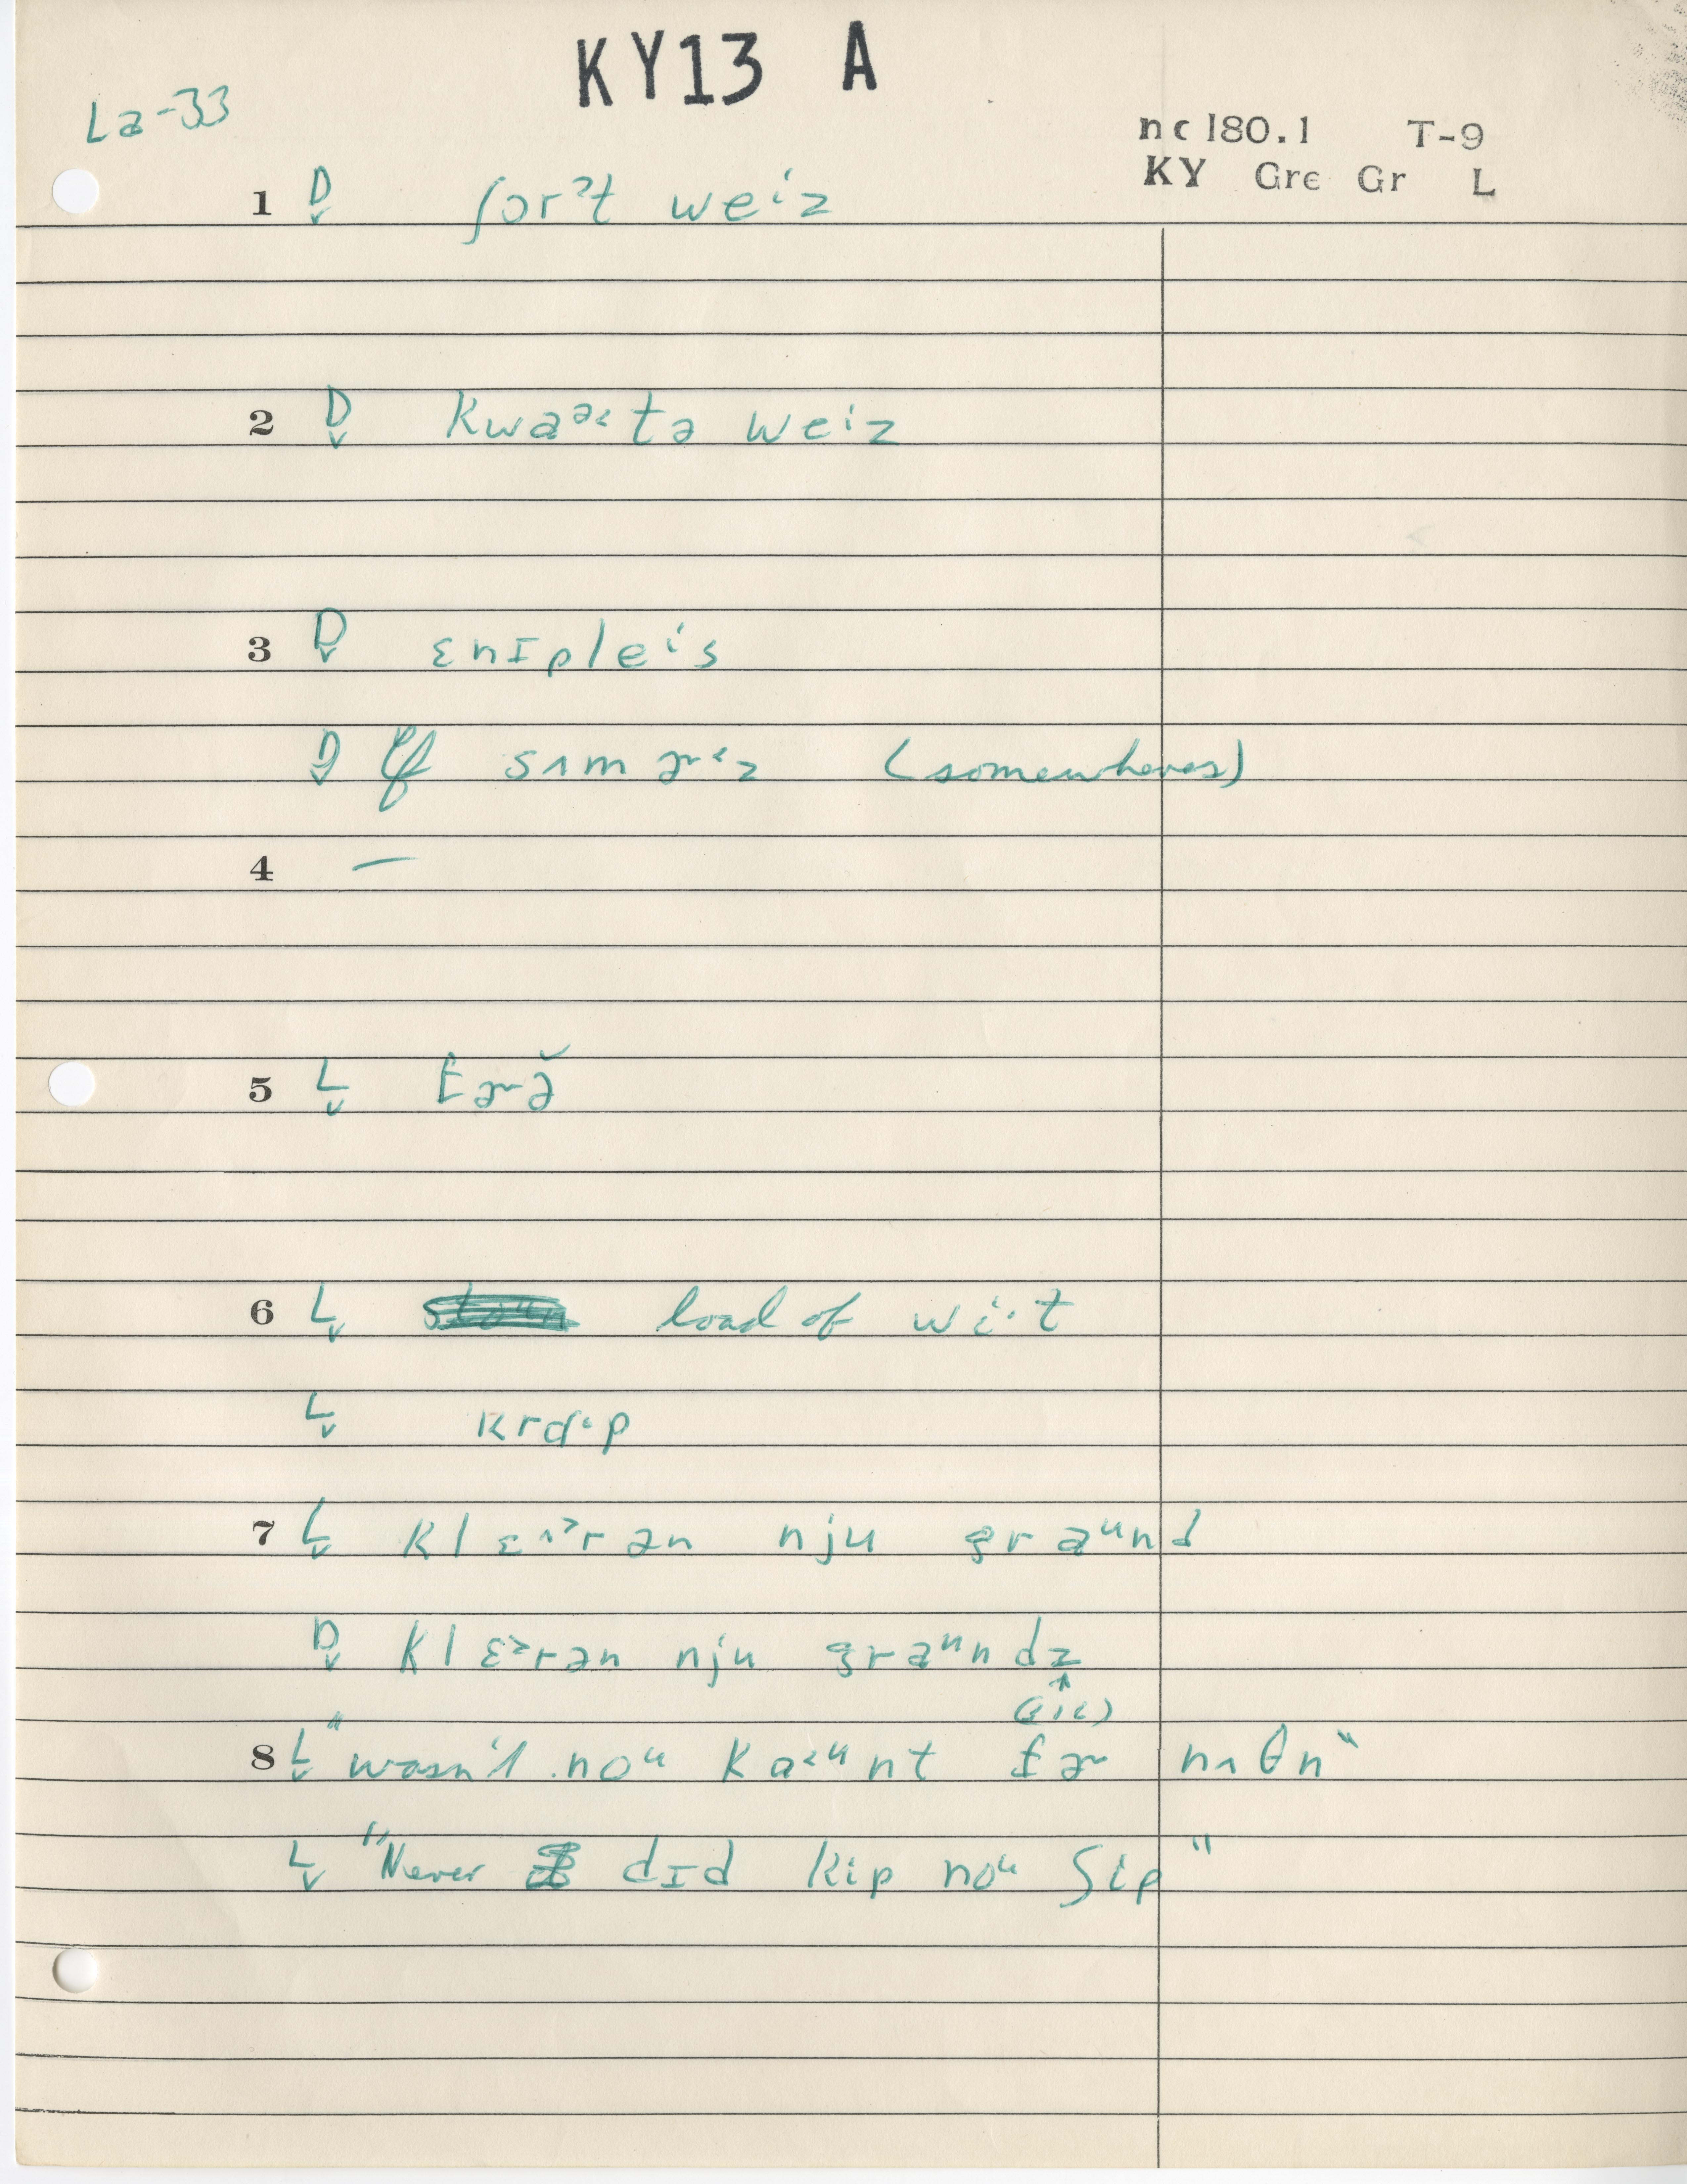 KY13 A
La-33
nc 180.1 T-9
KY Gre Gr L
1 D ʃorˀt weⁱz
2 D kwaᵊ˂tə weⁱz
3 D ɛnɪpleⁱs
D sʌmɚ˂z (somewheres)
4 —
5 L
6 L load of wi·t
L krɑ·p
7 L nju graᵘnd
D klɛᵊrən nju graᵘndz
(sic)
8 L "wasn't noᵘ ka˂ᵘnt fɚ nʌθn"
L "Never dɪd kip noᵘ ʃip"